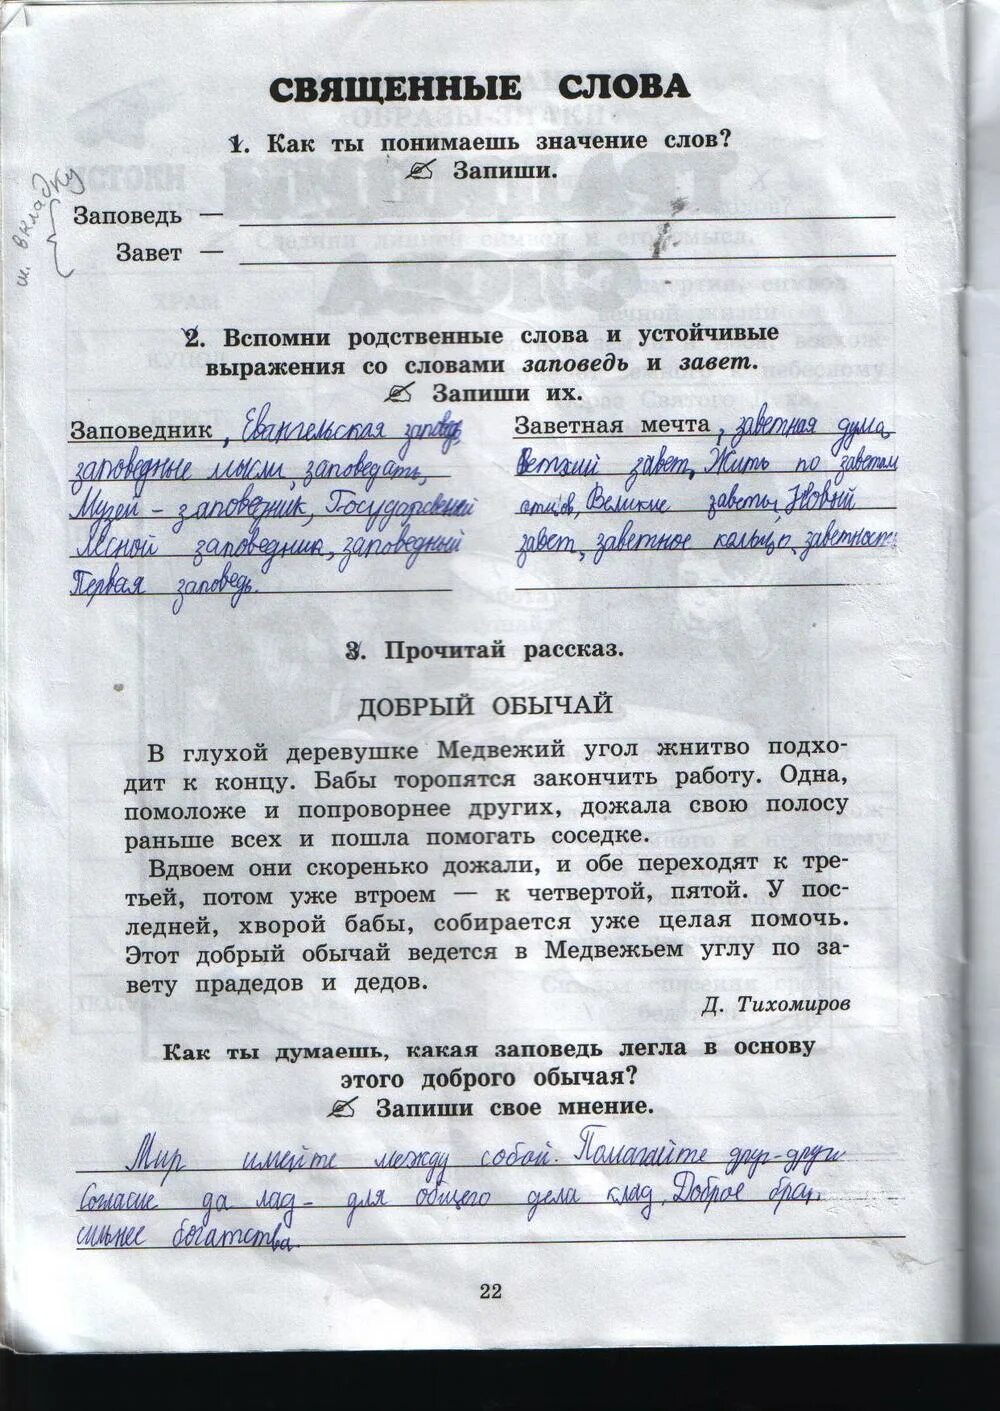 СВЯЩЕННЫЕ СЛОВА
1. Как ты понимаешь значение слов?
Запиши.
см. вкладку
Заповедь —
Завет —
2. Вспомни родственные слова и устойчивые
выражения со словами заповедь и завет.
Запиши их.
Заповедник, Евангельская заповедь
заповедные мысли, заповедать,
Музей - заповедник, Государственный
Лесной заповедник, заповедный
Первая заповедь.
Заветная мечта, заветная дума,
Ветхий завет, Жить по заветам
отцов, Великие заветы, Новый
завет, заветное кольцо, заветность
3. Прочитай рассказ.
ДОБРЫЙ ОБЫЧАЙ
В глухой деревушке Медвежий угол жнитво подхо-
дит к концу. Бабы торопятся закончить работу. Одна,
помоложе и попроворнее других, дожала свою полосу
раньше всех и пошла помогать соседке.
Вдвоем они скоренько дожали, и обе переходят к тре-
тьей, потом уже втроем — к четвертой, пятой. У пос-
ледней, хворой бабы, собирается уже целая помочь.
Этот добрый обычай ведется в Медвежьем углу по за-
вету прадедов и дедов.
Д. Тихомиров
Как ты думаешь, какая заповедь легла в основу
этого доброго обычая?
Запиши свое мнение.
Мир имейте между собой. Помагайте друг-другу
Согласие да лад - для общего дела клад. Доброе
сильнее богатства.
22